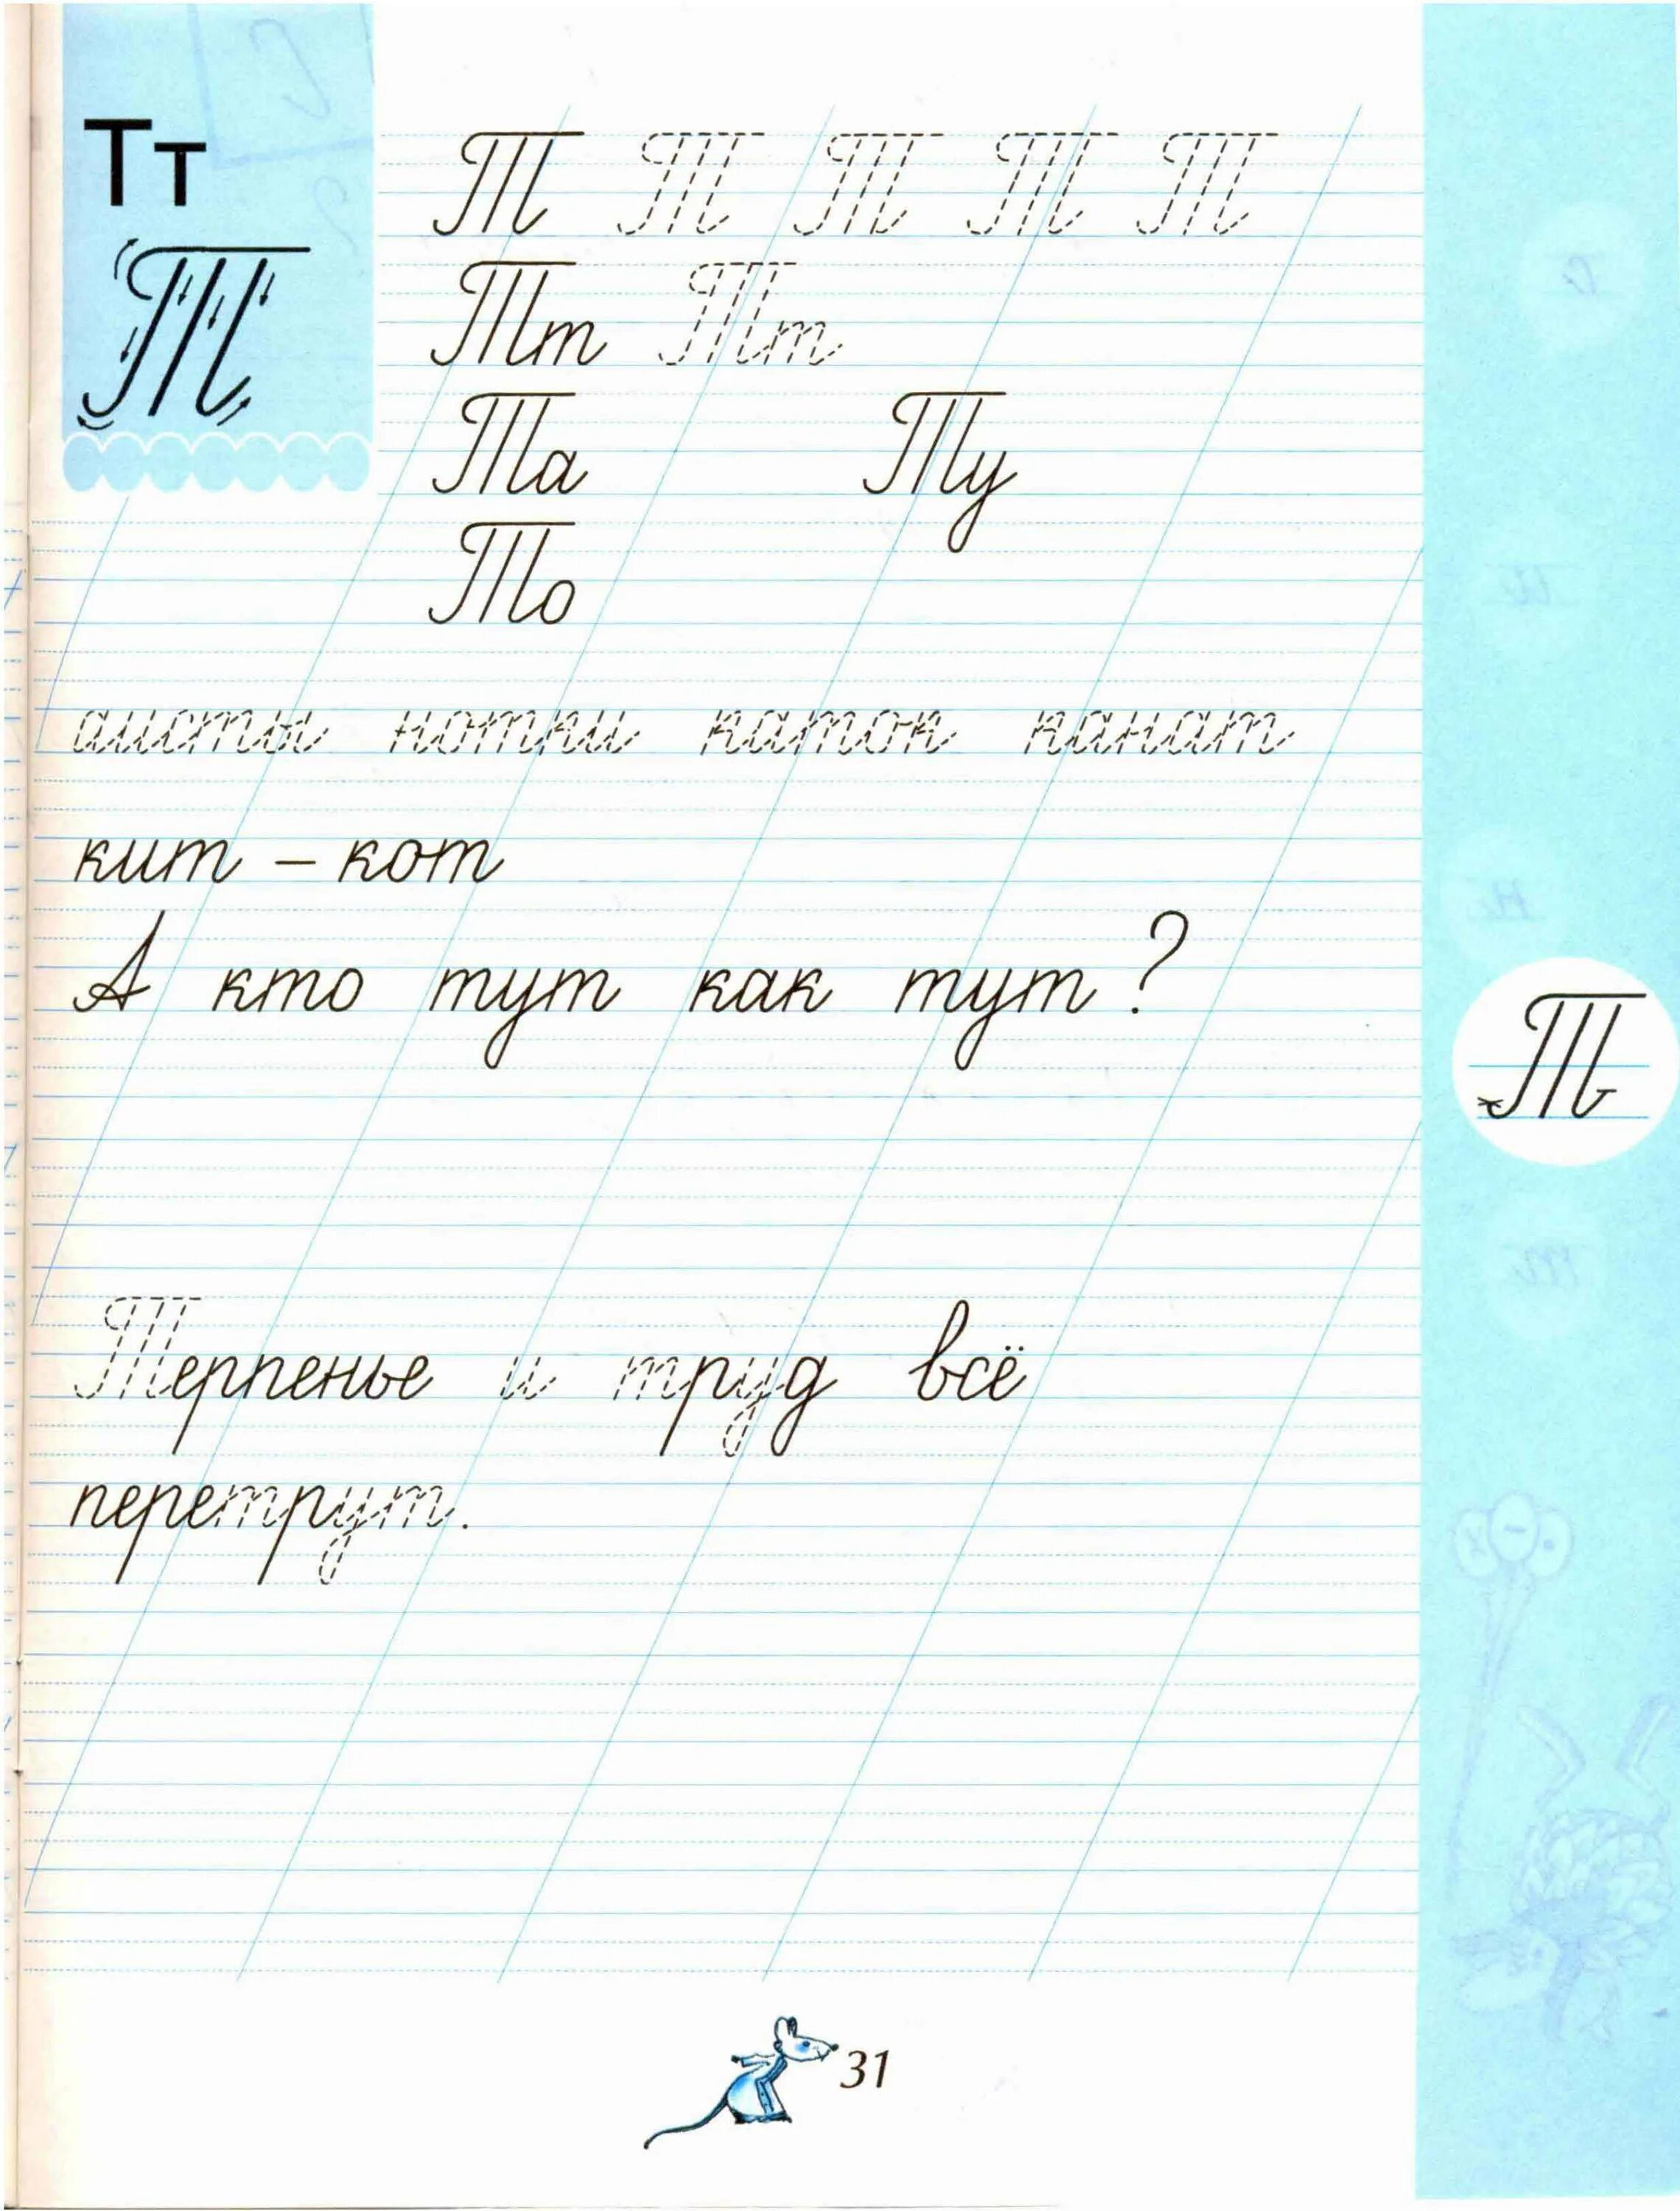 Тт
Т
Т Т Т Т Т
Тт Тт
Та Ту
То
аисты нотки каток канат
кит – кот
А кто тут как тут?
Т
Терпенье и труд всё
перетрут.
31